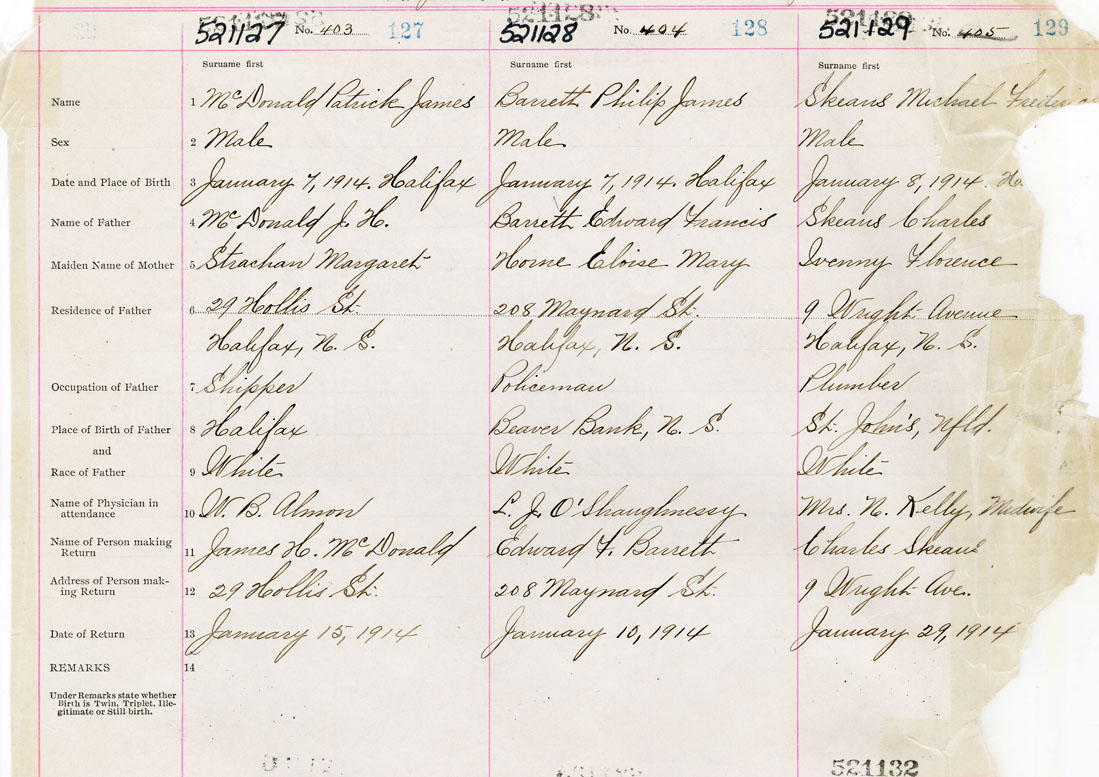 521127 No. 403 127 521128 No. 404 128 521129 No. 405 129
Suruame first Surname first Surname first
Name 1 McDonald Patrick James Barrett Philip James Skeans Michael
Sex 2 Male Male Male
Date and Place of Birth 3 January 7, 1914. Halifax January 7, 1914. Halifax January 8, 1914. Ha
Name of Father 4 McDonald J. H. Barrett Edward Francis Skeans Charles
Maiden Name of Mother 5 Strachan Margaret Horne Eloise Mary Ivenny Florence
Residence of Father 6 29 Hollis St. 208 Maynard St. 9 Wright Avenue
Halifax, N. S. Halifax, N. S. Halifax, N. S.
Occupation of Father 7 Shipper Policeman Plumber
Place of Birth of Father 8 Halifax Beaver Bank, N. S. St. John's, Nfld.
and
Race of Father 9 White White White
Name of Physician in
attendance 10 W. B. Almon L. J. O'Shaughnessy Mrs. N. Kelly, Midwife
Name of Person making
Return 11 James H. McDonald Edward F. Barrett Charles Skeans
Address of Person mak-
ing Return 12 29 Hollis St. 208 Maynard St. 9 Wright Ave.
Date of Return 13 January 15, 1914 January 10, 1914 January 29, 1914
REMARKS 14
Under Remarks state whether
Birth is Twin, Triplet, Ille-
gitimate or Still birth.
521132